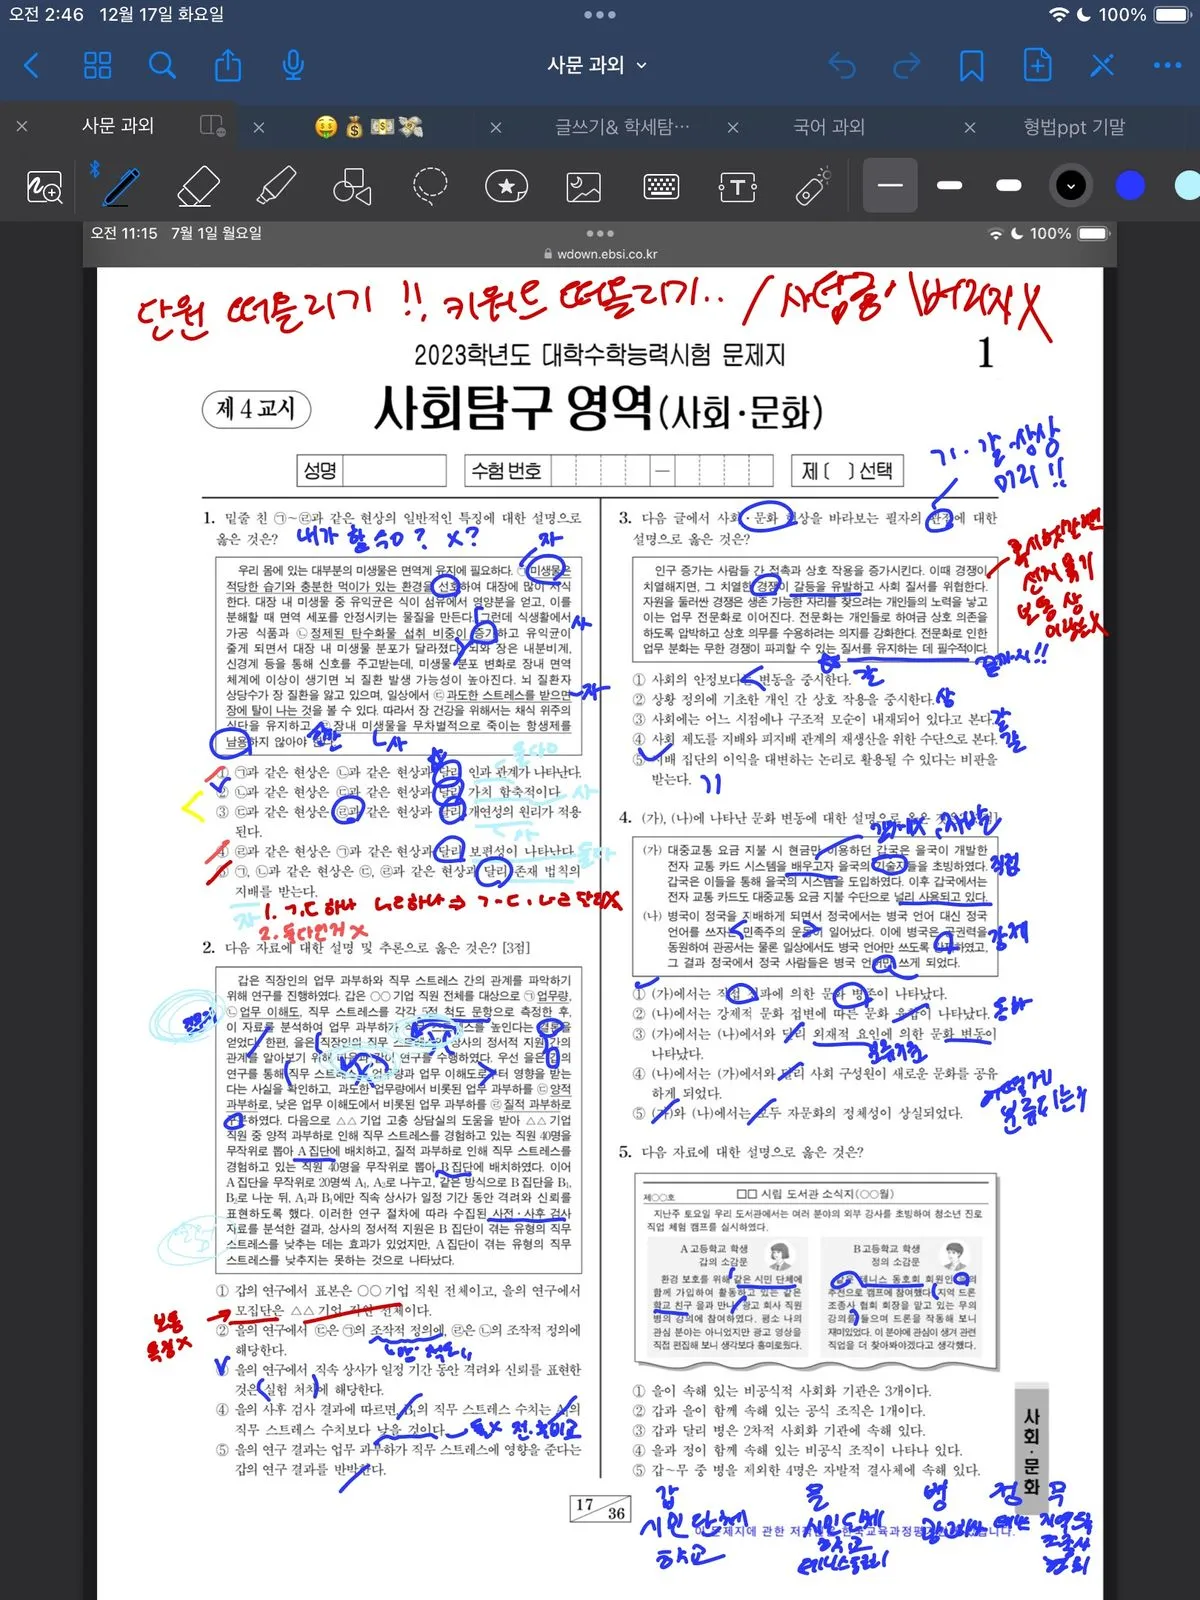 오전 2:46 12월 17일 화요일
100%
사문 과외
사문 과외
글쓰기& 학세탐…
국어 과외
형법ppt 기말
오전 11:15 7월 1일 월요일
100%
wdown.ebsi.co.kr
단원 떠올리기 !! 키워드 떠올리기..
2023학년도 대학수학능력시험 문제지
1
제 4 교시
사회탐구 영역(사회·문화)
성명
수험 번호
제 ( ) 선택
1. 밑줄 친 ㉠~㉣과 같은 현상의 일반적인 특징에 대한 설명으로
옳은 것은?
내가 할 수 ? X?
우리 몸에 있는 대부분의 미생물은 면역계 유지에 필요하다. ㉠미생물은
적당한 습기와 충분한 먹이가 있는 환경을 선호하여 대장에 많이 서식
한다. 대장 내 미생물 중 유익균은 식이 섬유에서 영양분을 얻고, 이를
분해할 때 면역 세포를 안정시키는 물질을 만든다. 그런데 식생활에서
가공 식품과 ㉡정제된 탄수화물 섭취 비중이 증가하고 유익균이
줄게 되면서 대장 내 미생물 분포가 달라졌다. 뇌와 장은 내분비계,
신경계 등을 통해 신호를 주고받는데, 미생물 분포 변화로 장내 면역
체계에 이상이 생기면 뇌 질환 발생 가능성이 높아진다. 뇌 질환자
상당수가 장 질환을 앓고 있으며, 일상에서 ㉢과도한 스트레스를 받으면
장에 탈이 나는 것을 볼 수 있다. 따라서 장 건강을 위해서는 채식 위주의
식단을 유지하고 ㉣장내 미생물을 무차별적으로 죽이는 항생제를
남용하지 않아야 한다.
① ㉠과 같은 현상은 ㉡과 같은 현상과 달리 인과 관계가 나타난다.
② ㉡과 같은 현상은 ㉢과 같은 현상과 달리 가치 함축적이다.
③ ㉢과 같은 현상은 ㉣과 같은 현상과 달리 개연성의 원리가 적용
된다.
④ ㉣과 같은 현상은 ㉠과 같은 현상과 달리 보편성이 나타난다.
⑤ ㉠, ㉡과 같은 현상은 ㉢, ㉣과 같은 현상과 달리 존재 법칙의
지배를 받는다.
2. 다음 자료에 대한 설명 및 추론으로 옳은 것은? [3점]
갑은 직장인의 업무 과부하와 직무 스트레스 간의 관계를 파악하기
위해 연구를 진행하였다. 갑은 ○○ 기업 직원 전체를 대상으로 ㉠업무량,
㉡업무 이해도, 직무 스트레스를 각각 5점 척도 문항으로 측정한 후,
이 자료를 분석하여 업무 과부하가 직무 스트레스를 높인다는 결론을
얻었다. 한편, 을은 직장인의 직무 스트레스와 상사의 정서적 지원 간의
관계를 알아보기 위해 다음과 같이 연구를 수행하였다. 우선 을은 갑의
연구를 통해 직무 스트레스가 업무량과 업무 이해도로부터 영향을 받는
다는 사실을 확인하고, 과도한 업무량에서 비롯된 업무 과부하를 ㉢양적
과부하로, 낮은 업무 이해도에서 비롯된 업무 과부하를 ㉣질적 과부하로
구분하였다. 다음으로 △△ 기업 고충 상담실의 도움을 받아 △△ 기업
직원 중 양적 과부하로 인해 직무 스트레스를 경험하고 있는 직원 40명을
무작위로 뽑아 A 집단에 배치하고, 질적 과부하로 인해 직무 스트레스를
경험하고 있는 직원 40명을 무작위로 뽑아 B 집단에 배치하였다. 이어
A 집단을 무작위로 20명씩 A₁, A₂로 나누고, 같은 방식으로 B 집단을 B₁,
B₂로 나눈 뒤, A₁과 B₁에만 직속 상사가 일정 기간 동안 격려와 신뢰를
표현하도록 했다. 이러한 연구 절차에 따라 수집된 사전·사후 검사
자료를 분석한 결과, 상사의 정서적 지원은 B 집단이 겪는 유형의 직무
스트레스를 낮추는 데는 효과가 있었지만, A 집단이 겪는 유형의 직무
스트레스를 낮추지는 못하는 것으로 나타났다.
① 갑의 연구에서 표본은 ○○ 기업 직원 전체이고, 을의 연구에서
모집단은 △△ 기업 직원 전체이다.
② 을의 연구에서 ㉢은 ㉠의 조작적 정의에, ㉣은 ㉡의 조작적 정의에
해당한다.
③ 을의 연구에서 직속 상사가 일정 기간 동안 격려와 신뢰를 표현한
것은 실험 처치에 해당한다.
④ 을의 사후 검사 결과에 따르면, B₁의 직무 스트레스 수치는 A₁의
직무 스트레스 수치보다 낮을 것이다.
⑤ 을의 연구 결과는 업무 과부하가 직무 스트레스에 영향을 준다는
갑의 연구 결과를 반박한다.
기·갈·상상
미리!!
3. 다음 글에서 사회·문화 현상을 바라보는 필자의 관점에 대한
설명으로 옳은 것은?
인구 증가는 사람들 간 접촉과 상호 작용을 증가시킨다. 이때 경쟁이
치열해지면, 그 치열한 경쟁이 갈등을 유발하고 사회 질서를 위협한다.
자원을 둘러싼 경쟁은 생존 가능한 자리를 찾으려는 개인들의 노력을 낳고
이는 업무 전문화로 이어진다. 전문화는 개인들로 하여금 상호 의존을
하도록 압박하고 상호 의무를 수용하려는 의지를 강화한다. 전문화로 인한
업무 분화는 무한 경쟁이 파괴할 수 있는 질서를 유지하는 데 필수적이다.
끝까지!!
① 사회의 안정보다는 변동을 중시한다.
갈
② 상황 정의에 기초한 개인 간 상호 작용을 중시한다.
상
③ 사회에는 어느 시점에나 구조적 모순이 내재되어 있다고 본다.
갈
④ 사회 제도를 지배와 피지배 관계의 재생산을 위한 수단으로 본다.
갈
⑤ 지배 집단의 이익을 대변하는 논리로 활용될 수 있다는 비판을
받는다.
기
4. (가), (나)에 나타난 문화 변동에 대한 설명으로 옳은 것은? [3점]
(가) 대중교통 요금 지불 시 현금만 이용하던 갑국은 을국이 개발한
전자 교통 카드 시스템을 배우고자 을국의 기술자들을 초빙하였다.
갑국은 이들을 통해 을국의 시스템을 도입하였다. 이후 갑국에서는
전자 교통 카드도 대중교통 요금 지불 수단으로 널리 사용되고 있다.
직접
(나) 병국이 정국을 지배하게 되면서 정국에서는 병국 언어 대신 정국
언어를 쓰자는 민족주의 운동이 일어났다. 이에 병국은 공권력을
동원하여 관공서는 물론 일상에서도 병국 언어만 쓰도록 강제하였고,
그 결과 정국에서 정국 사람들은 병국 언어만 쓰게 되었다.
강제
① (가)에서는 직접 전파에 의한 문화 병존이 나타났다.
② (나)에서는 강제적 문화 접변에 따른 문화 융합이 나타났다.
동화
③ (가)에서는 (나)에서와 달리 외재적 요인에 의한 문화 변동이
나타났다.
④ (나)에서는 (가)에서와 달리 사회 구성원이 새로운 문화를 공유
하게 되었다.
⑤ (가)와 (나)에서는 모두 자문화의 정체성이 상실되었다.
5. 다음 자료에 대한 설명으로 옳은 것은?
제○○호
□□ 시립 도서관 소식지(○○월)
지난주 토요일 우리 도서관에서는 여러 분야의 외부 강사를 초빙하여 청소년 진로
직업 체험 캠프를 실시하였다.
A 고등학교 학생
갑의 소감문
환경 보호를 위해 같은 시민 단체에
함께 가입하여 활동하고 있는 같은
학교 친구 을과 만나, 광고 회사 직원
병의 강의에 참여하였다. 평소 나의
관심 분야는 아니었지만 광고 영상을
직접 편집해 보니 생각보다 흥미로웠다.
B 고등학교 학생
정의 소감문
같은 테니스 동호회 회원인 을의
추천으로 캠프에 참여했다. 지역 드론
조종사 협회 회장을 맡고 있는 무의
강의를 들으며 드론을 작동해 보니
재미있었다. 이 분야에 관심이 생겨 관련
직업을 더 찾아봐야겠다고 생각했다.
① 을이 속해 있는 비공식적 사회화 기관은 3개이다.
② 갑과 을이 함께 속해 있는 공식 조직은 1개이다.
③ 갑과 달리 병은 2차적 사회화 기관에 속해 있다.
④ 을과 정이 함께 속해 있는 비공식 조직이 나타나 있다.
⑤ 갑~무 중 병을 제외한 4명은 자발적 결사체에 속해 있다.
사회·문화
갑 을 병 정 무
시민단체 시민단체
학교 학교
17 36